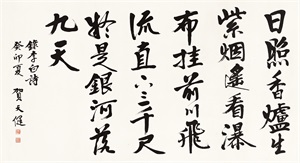 日照香爐生
紫烟遙看瀑
布挂前川飛
流直下三千尺
疑是銀河落
九天
錄李白詩
癸卯夏 賀天健